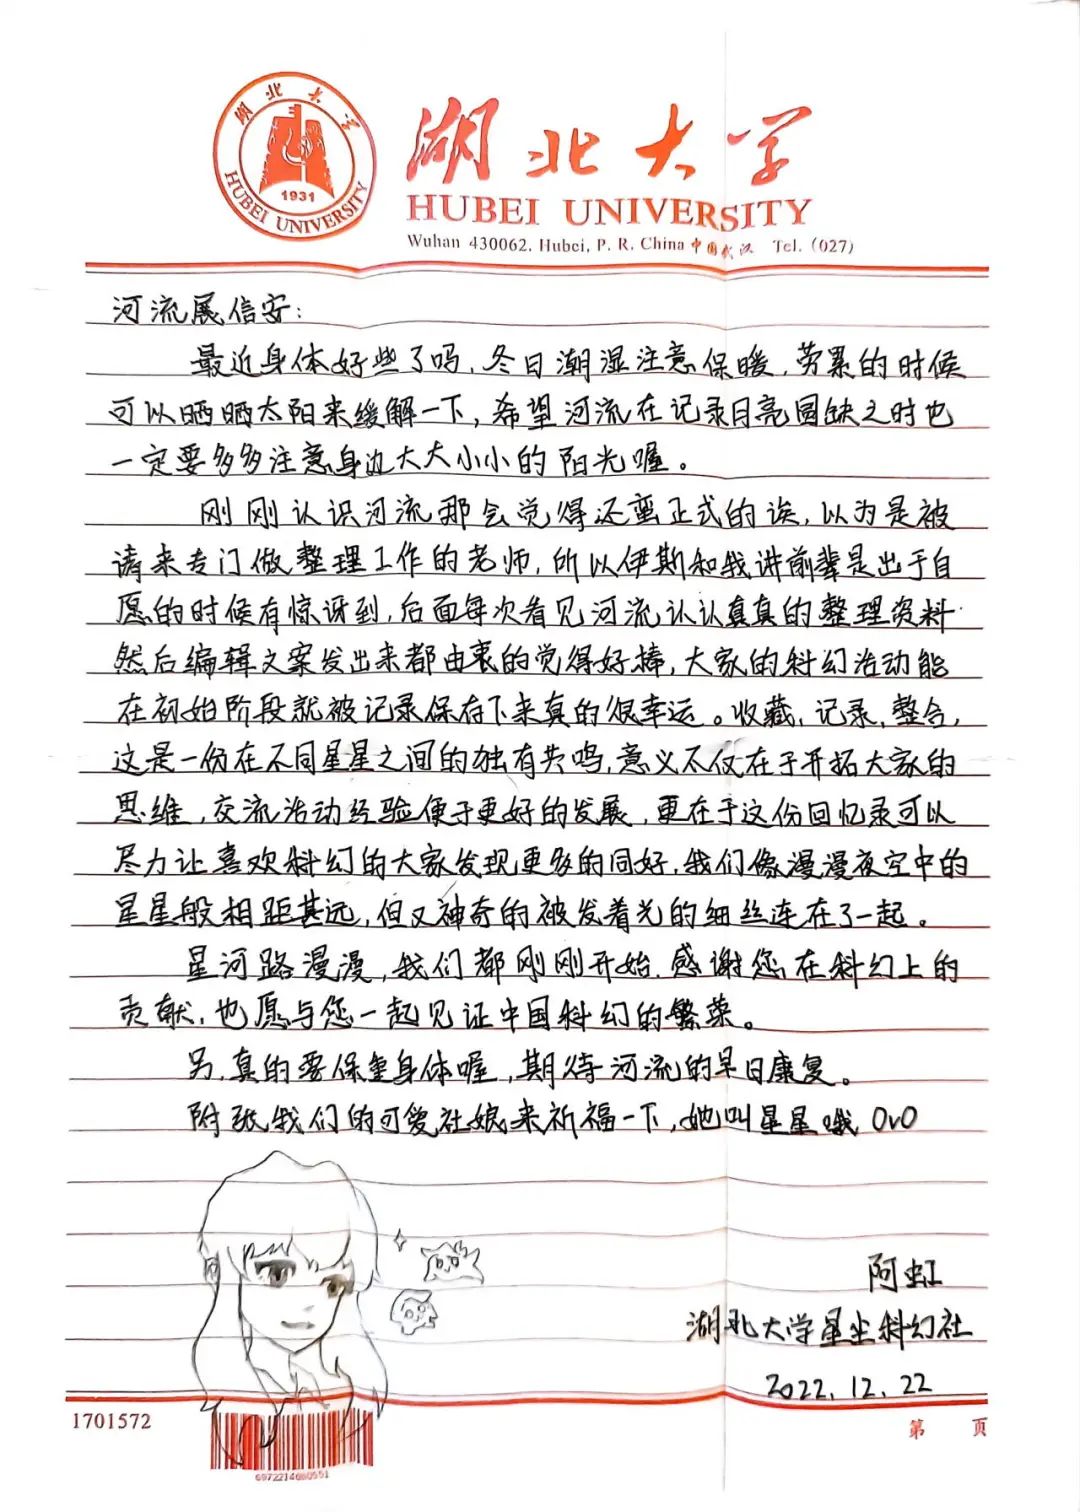 湖北大学
HUBEI UNIVERSITY
1931
湖北大学
HUBEI UNIVERSITY
Wuhan 430062. Hubei, P. R. China 中国武汉 Tel. (027)
河流展信安:
最近身体好些了吗,冬日潮湿注意保暖,劳累的时候
可以晒晒太阳来缓解一下,希望河流在记录月亮圆缺之时也
一定要多多注意身边大大小小的阳光喔。
刚刚认识河流那会觉得还蛮正式的诶,以为是被
请来专门做整理工作的老师,所以伊斯和我讲前辈是出于自
愿的时候有惊讶到,后面每次看见河流认认真真的整理资料
然后编辑文案发出来都由衷的觉得好棒,大家的科幻活动能
在初始阶段就被记录保存下来真的很幸运。收藏,记录,整合,
这是一份在不同星星之间的独有共鸣,意义不仅在于开拓大家的
思维,交流活动经验便于更好的发展,更在于这份回忆录可以
尽力让喜欢科幻的大家发现更多的同好,我们像漫漫夜空中的
星星般相距甚远,但又神奇的被发着光的细丝连在了一起。
星河路漫漫,我们都刚刚开始,感谢您在科幻上的
贡献,也愿与您一起见证中国科幻的繁荣。
另,真的要保重身体喔,期待河流的早日康复。
附张我们的可爱社娘来祈福一下,她叫星星哦 OvO
阿虹
湖北大学星尘科幻社
2022.12.22
1701572
第 页